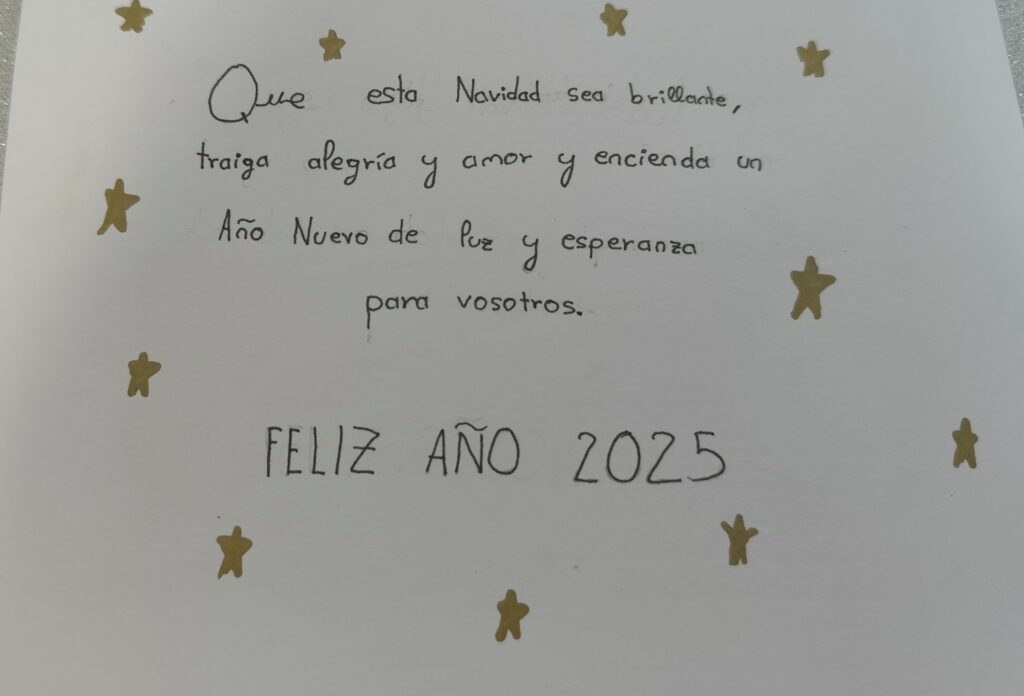 Que esta Navidad sea brillante,
traiga alegría y amor y encienda un
Año Nuevo de Paz y esperanza
para vosotros.
FELIZ AÑO 2025